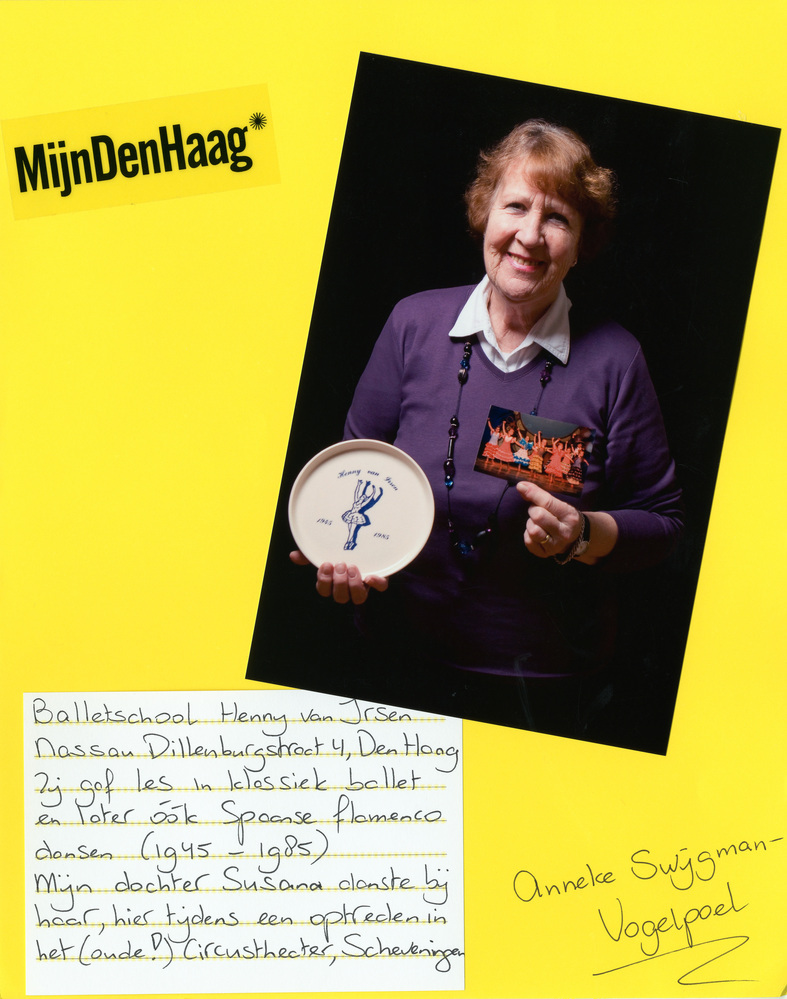 MijnDenHaag*
Henny van Irsen
1945 1985
Balletschool Henny van Irsen
Nassau Dillenburgstraat 4, Den Haag
Zij gaf les in klassiek ballet
en later óók Spaanse flamenco
dansen (1945 – 1985)
Mijn dochter Susana danste bij
haar, hier tijdens een optreden in
het (oude!) Circustheater, Scheveningen
Anneke Swijgman-
Vogelpoel